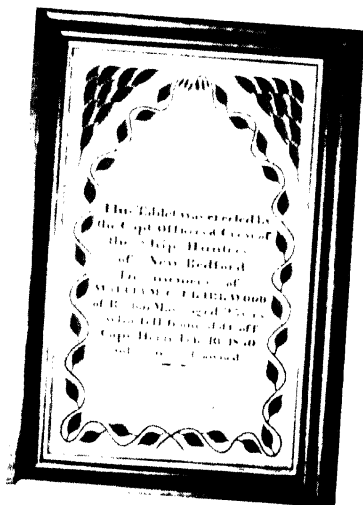 This Tablet was erected by
the Capt. Officers & Crew of
the Ship Huntress
of New Bedford
In memory of
WILLIAM C. KIRKWOOD
of Boston Mass. aged 25 yrs
who fell from aloft off
Cape Horn Feb. 10, 1850
and was drowned